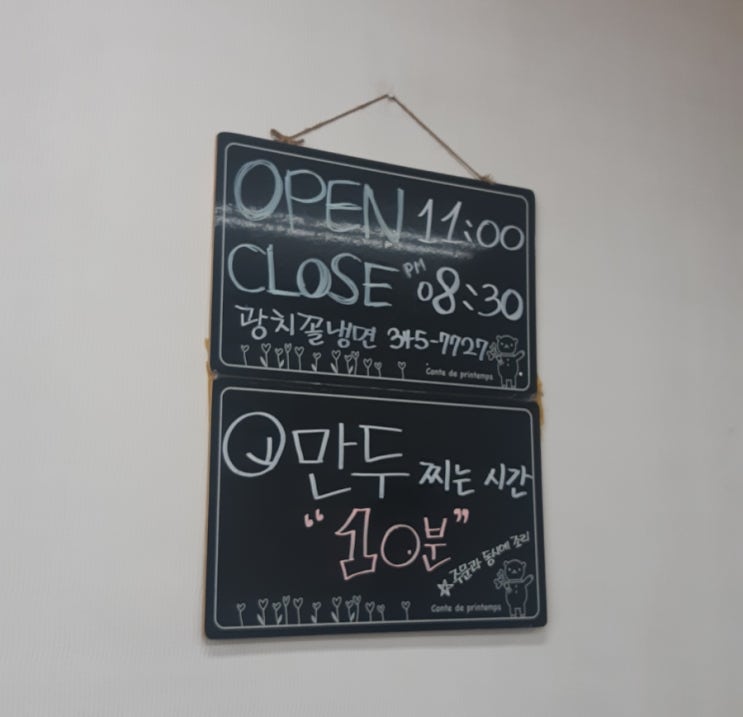 OPEN 11:00
CLOSE PM 08:30
광치꼴냉면 345-7727
Conte de printemps
만두 찌는 시간
"10분"
☆주문과 동시에 조리
Conte de printemps